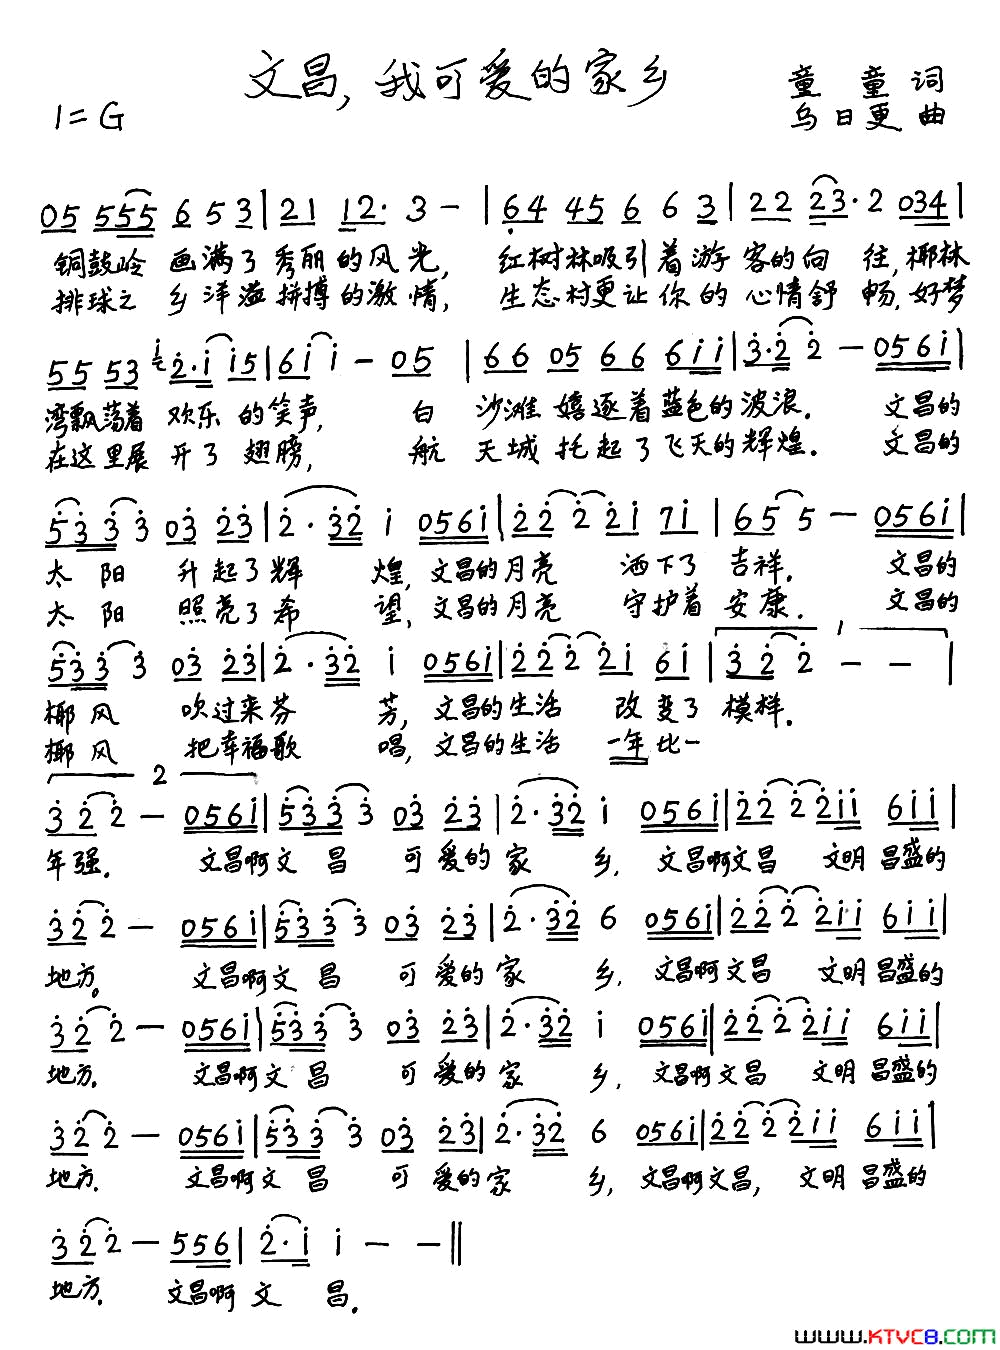 文昌，我可爱的家乡
童童词
1=G
乌日更曲
05 555 6 5 3 | 21 12· 3 - | 64 45 6 6 3 | 22 23· 2 034 |
铜鼓岭 画满了秀丽的风光， 红树林吸引着游客的向往，椰林
排球之乡洋溢拼搏的激情， 生态村更让你的心情舒畅，好梦
55 53 2·i i5 | 6i i - 05 | 66 05 66 6ii | 3·2 2 - 056i |
湾飘荡着 欢乐的笑声， 白沙滩嬉逐着蓝色的波浪． 文昌的
在这里展开了翅膀， 航天城托起了飞天的辉煌． 文昌的
533 3 03 23 | 2·32 i 056i | 22 2 2i 7i | 65 5 - 056i |
太阳 升起了辉煌，文昌的月亮 洒下了吉祥． 文昌的
太阳 照亮了希望，文昌的月亮 守护着安康． 文昌的
533 3 03 23 | 2·32 i 056i | 22 2 2i 6i | 1 32 2 - - |
椰风 吹过来芬芳，文昌的生活 改变了模样．
椰风 把幸福歌唱，文昌的生活 一年比一
2
32 2 - 056i | 533 3 03 23 | 2·32 i 056i | 22 2 2ii 6ii |
年强． 文昌啊文昌 可爱的家乡，文昌啊文昌 文明昌盛的
32 2 - 056i | 533 3 03 23 | 2·32 6 056i | 22 2 2ii 6ii |
地方。 文昌啊文昌 可爱的家乡，文昌啊文昌 文明昌盛的
32 2 - 056i | 533 3 03 23 | 2·32 i 056i || 22 2 2ii 6ii |
地方． 文昌啊文昌 可爱的家乡，文昌啊文昌 文明昌盛的
32 2 - 056i | 533 3 03 23 | 2·32 6 056i | 22 2 2ii 6ii |
地方． 文昌啊文昌 可爱的家乡，文昌啊文昌，文明昌盛的
32 2 - 556 | 2·i i - - ||
地方． 文昌啊文昌．
www.KTVC8.com